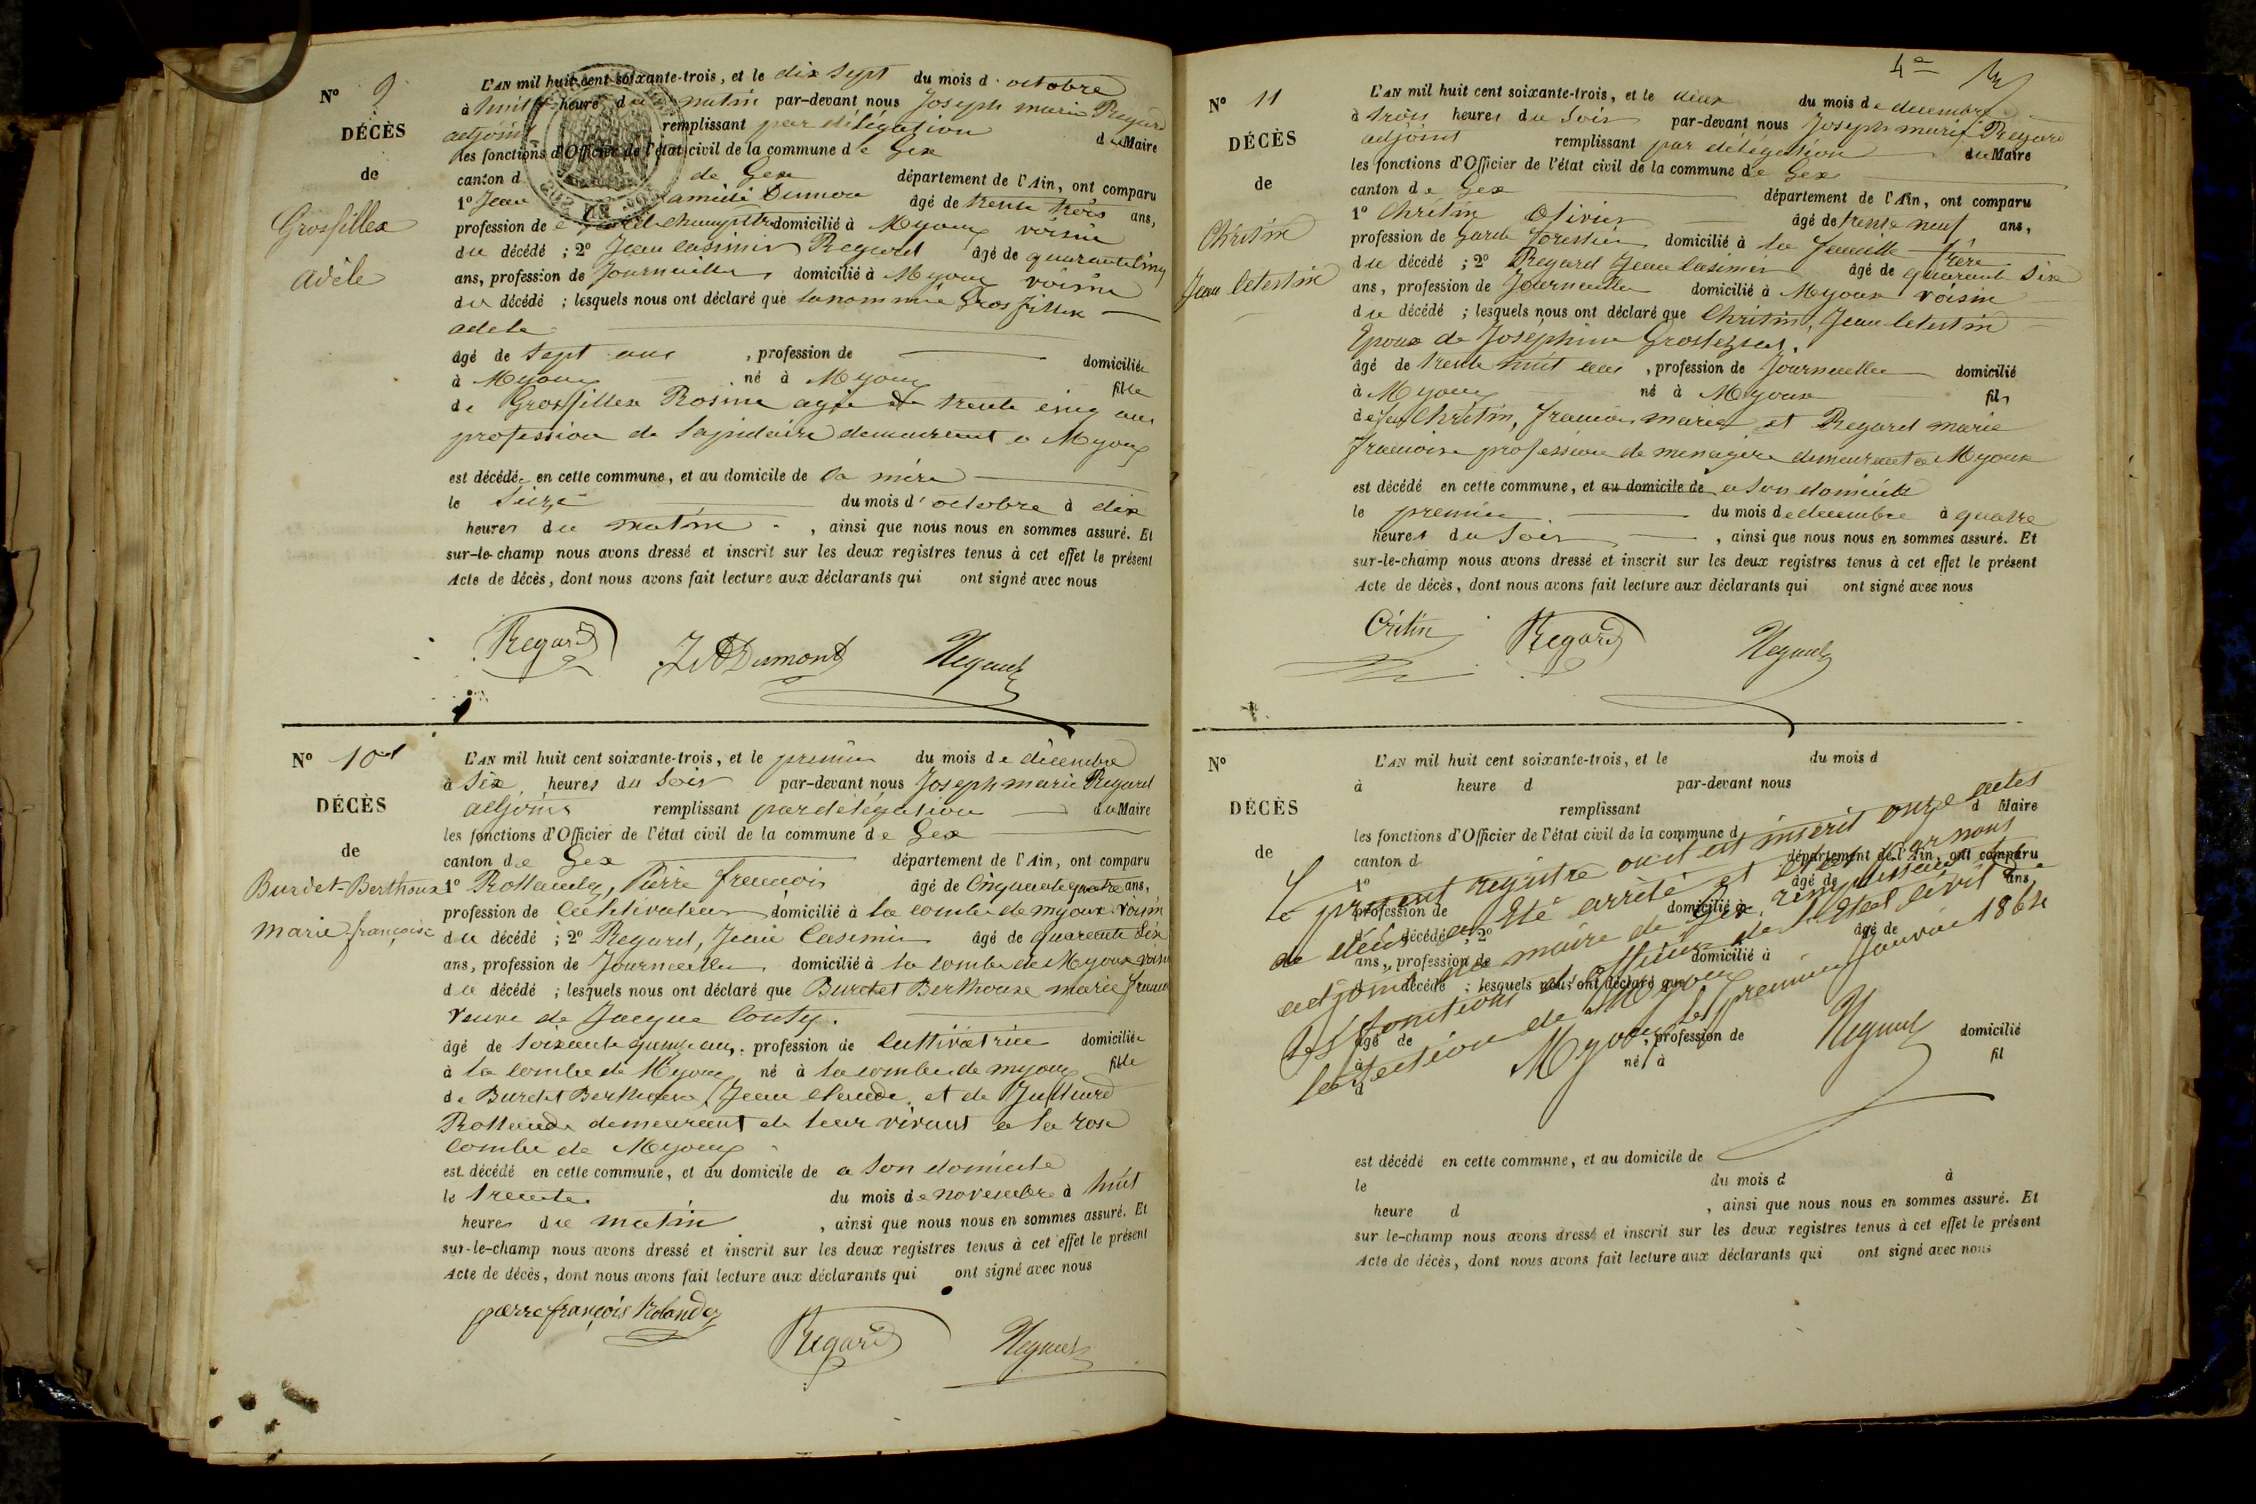 N° 9
DÉCÈS
de
Grosfillex
adèle
L'AN mil huit cent soixante-trois, et le dix sept du mois d'octobre
à huit heure du matin par-devant nous Joseph marie Regard
adjoint remplissant par délégation du Maire
les fonctions d'Officier de l'état civil de la commune de Gex
canton d de Gex département de l'Ain, ont comparu
1° Jean amédé Dumon âgé de trente trois ans,
profession de champêtre domicilié à Myoux voisin
du décédé ; 2° Jean Casimir Regard âgé de quarante cinq
ans, profession de Journaillier domicilié à Myoux voisin
du décédé ; lesquels nous ont déclaré que la nommée Grosfillex
adele
âgé de sept ans , profession de domiciliée
à Myoux né à Myoux fille
de Grosfillex Rosine agée de trente cinq ans
profession de Lapidaire demeurant a Myoux
est décédée en cette commune, et au domicile de sa mère
le Seize du mois d'octobre à dix
heures du matin , ainsi que nous nous en sommes assuré. Et
sur-le-champ nous avons dressé et inscrit sur les deux registres tenus à cet effet le présent
Acte de décès, dont nous avons fait lecture aux déclarants qui ont signé avec nous
Regard JADumont Regard
N° 10
DÉCÈS
de
Burdet-Berthoux
marie françoise
L'AN mil huit cent soixante-trois, et le premier du mois de décembre
à Six heures du Soir par-devant nous Joseph marie Regard
adjoint remplissant par délégation du Maire
les fonctions d'Officier de l'état civil de la commune de Gex
canton de Gex département de l'Ain, ont comparu
1° Rollandez, Pierre françois âgé de Cinquante quatre ans,
profession de Cultivateur domicilié à la combe de myoux voisin
du décédé ; 2° Regard, Jean Casimir âgé de quarante Six
ans, profession de Journaillier domicilié à la combe de Myoux voisin
du décédé ; lesquels nous ont déclaré que Burdet Berthoux marie
veuve de Jacque Couty.
âgé de soixante quinze ans, profession de Cultivatrice domiciliée
à la combe de Myoux né à la combe de myoux fille
de Burdet Berthoux, Jean claude, et de
demeurant de leur vivant a la
Combe de Myoux
est décédé en cette commune, et au domicile de a son domicile
le trente du mois de novembre à huit
heures du matin , ainsi que nous nous en sommes assuré. Et
sur-le-champ nous avons dressé et inscrit sur les deux registres tenus à cet effet le présent
Acte de décès, dont nous avons fait lecture aux déclarants qui ont signé avec nous
pierre françois Rolandez Regard Regard
4e
N° 11
DÉCÈS
de
Chritin
Jean Celestin
L'AN mil huit cent soixante-trois, et le deux du mois de decembre
à trois heures du Soir par-devant nous Joseph marie Regard
adjoint remplissant par délégation du Maire
les fonctions d'Officier de l'état civil de la commune de Gex
canton de Gex département de l'Ain, ont comparu
1° Chritin Olivier âgé de trente neuf ans,
profession de garde forestier domicilié à la faucille frère
du décédé ; 2° Regard Jean Casimir âgé de quarante Six
ans, profession de Journaillier domicilié à Myoux voisin
du décédé ; lesquels nous ont déclaré que Chritin, Jean Celestin
Epoux de Joséphine
âgé de trente huit ans , profession de Journaillier domicilié
à Myoux né à Myoux fils
de feu Chritin, françois marie et Regard marie
francoise profession de menagère demeurant a Myoux
est décédé en cette commune, et au domicile de a son domicile
le premier du mois de decembre à quatre
heures du Soir , ainsi que nous nous en sommes assuré. Et
sur-le-champ nous avons dressé et inscrit sur les deux registres tenus à cet effet le présent
Acte de décès, dont nous avons fait lecture aux déclarants qui ont signé avec nous
Critin Regard Regard
N°
DÉCÈS
de
L'AN mil huit cent soixante-trois, et le du mois d
à heure d par-devant nous
remplissant d Maire
les fonctions d'Officier de l'état civil de la commune d
canton d département de l'Ain, ont comparu
1° âgé de ans,
profession de domicilié à
d décédé ; 2° âgé de
ans, profession de domicilié à
d décédé ; lesquels nous ont déclaré que
âgé de , profession de domicilié
à né à fil
d
Le present registre ou il est inscrit onze actes
de décès a Eté arrêté et clos par nous
adjoint au maire de Gex, remplissant
les fonctions d'officier de l'Etat civil de
la section de Myoux
Myoux le premier Janvier 1864
Regard
est décédé en cette commune, et au domicile de
le du mois d à
heure d , ainsi que nous nous en sommes assuré. Et
sur-le-champ nous avons dressé et inscrit sur les deux registres tenus à cet effet le présent
Acte de décès, dont nous avons fait lecture aux déclarants qui ont signé avec nous